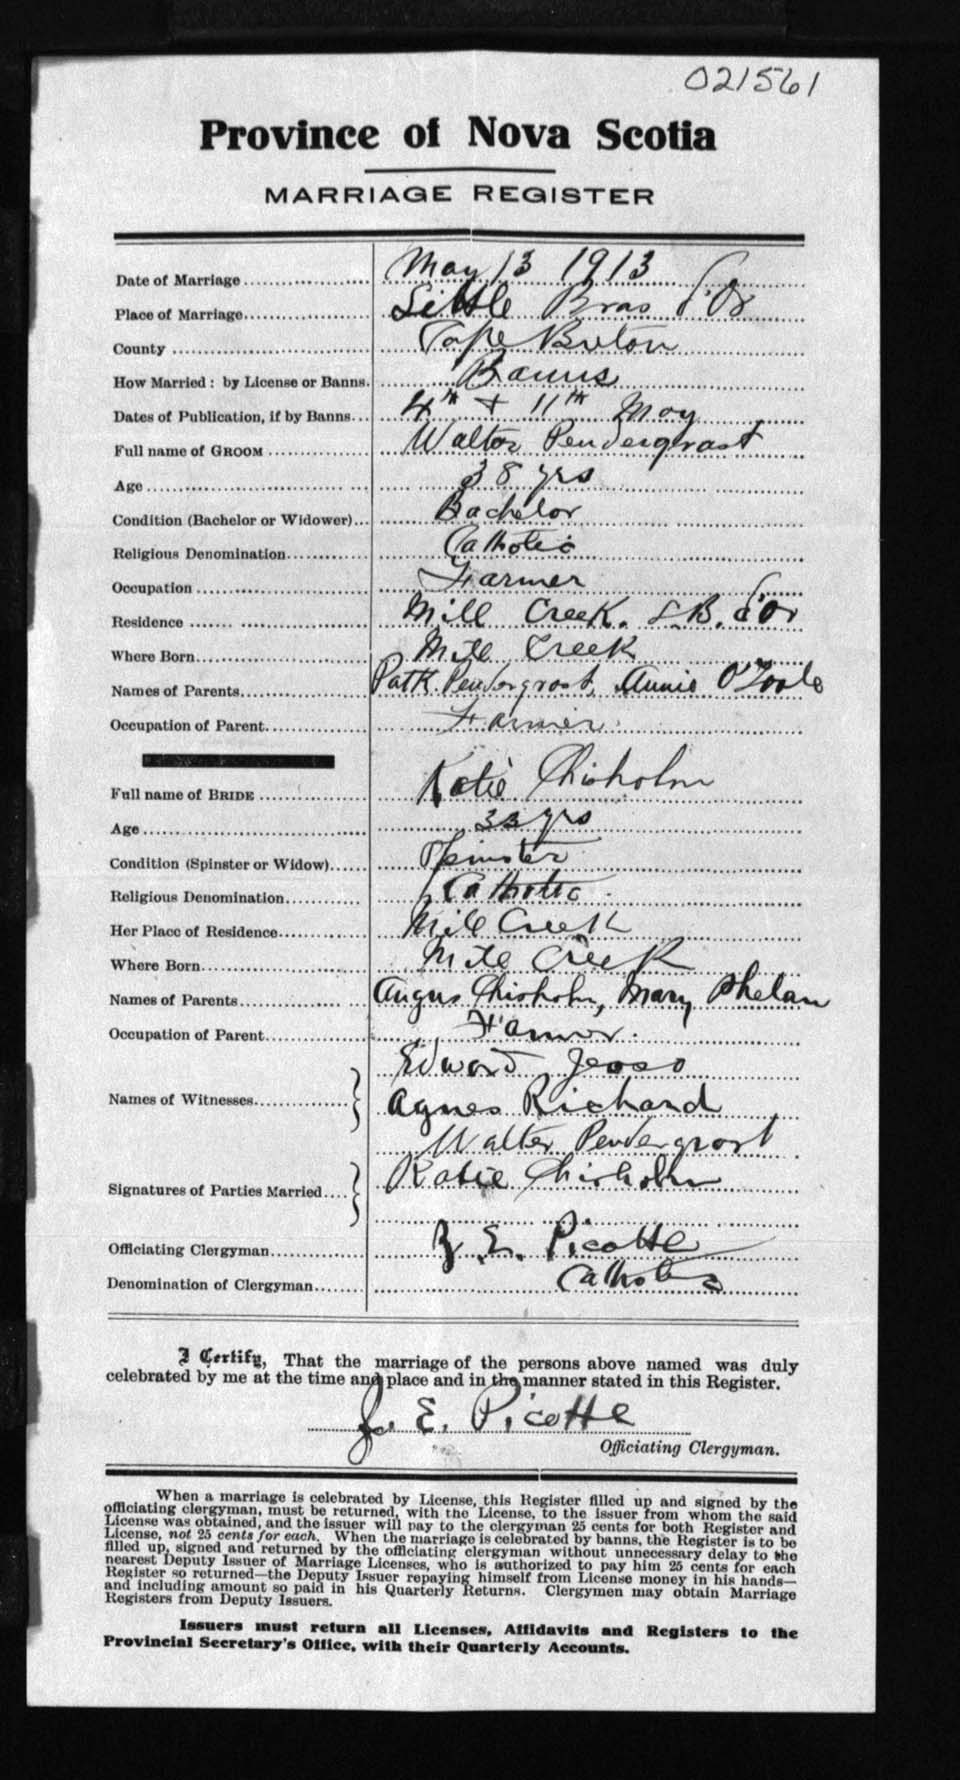 021561
Province of Nova Scotia
MARRIAGE REGISTER
Date of Marriage May 13 1913
Place of Marriage Little Bras d'Or
County Cape Breton
How Married: by License or Banns. Banns
Dates of Publication, if by Banns 4th + 11th May
Full name of GROOM Walter Pendergrast
Age 38 yrs
Condition (Bachelor or Widower) Bachelor
Religious Denomination Catholic
Occupation Farmer
Residence Mill Creek. L.B. d'Or
Where Born Mill Creek
Names of Parents Patk Pendergrast, Annie O'Toole
Occupation of Parent Farmer
Full name of BRIDE Katie Chisholm
Age 33 yrs
Condition (Spinster or Widow) Spinster
Religious Denomination Catholic
Her Place of Residence Mill Creek
Where Born Mill Creek
Names of Parents Angus Chisholm, Mary Phelan
Occupation of Parent Farmer
Edward
Names of Witnesses Agnes Richard
Walter Pendergrast
Signatures of Parties Married Katie Chisholm
Officiating Clergyman J. E. Picotte
Denomination of Clergyman Catholic
I Certify, That the marriage of the persons above named was duly
celebrated by me at the time and place and in the manner stated in this Register.
J. E. Picotte
Officiating Clergyman.
When a marriage is celebrated by License, this Register filled up and signed by the
officiating clergyman, must be returned, with the License, to the issuer from whom the said
License was obtained, and the issuer will pay to the clergyman 25 cents for both Register and
License, not 25 cents for each. When the marriage is celebrated by banns, the Register is to be
filled up, signed and returned by the officiating clergyman without unnecessary delay to the
nearest Deputy Issuer of Marriage Licenses, who is authorized to pay him 25 cents for each
Register so returned—the Deputy Issuer repaying himself from License money in his hands—
and including amount so paid in his Quarterly Returns. Clergymen may obtain Marriage
Registers from Deputy Issuers.
Issuers must return all Licenses, Affidavits and Registers to the
Provincial Secretary's Office, with their Quarterly Accounts.